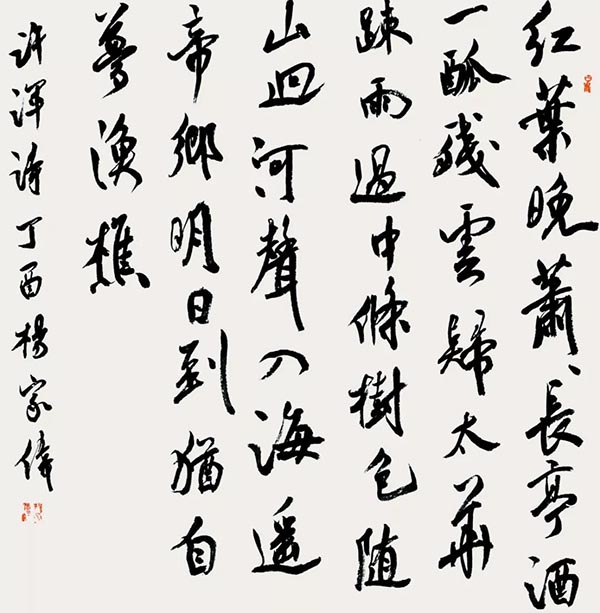 红葉晚蕭〻長亭酒
一瓢殘雲歸太華
疎雨過中條樹色随
山迥河聲入海遥
帝鄉明日到猶自
夢漁樵
許渾詩丁酉楊家偉